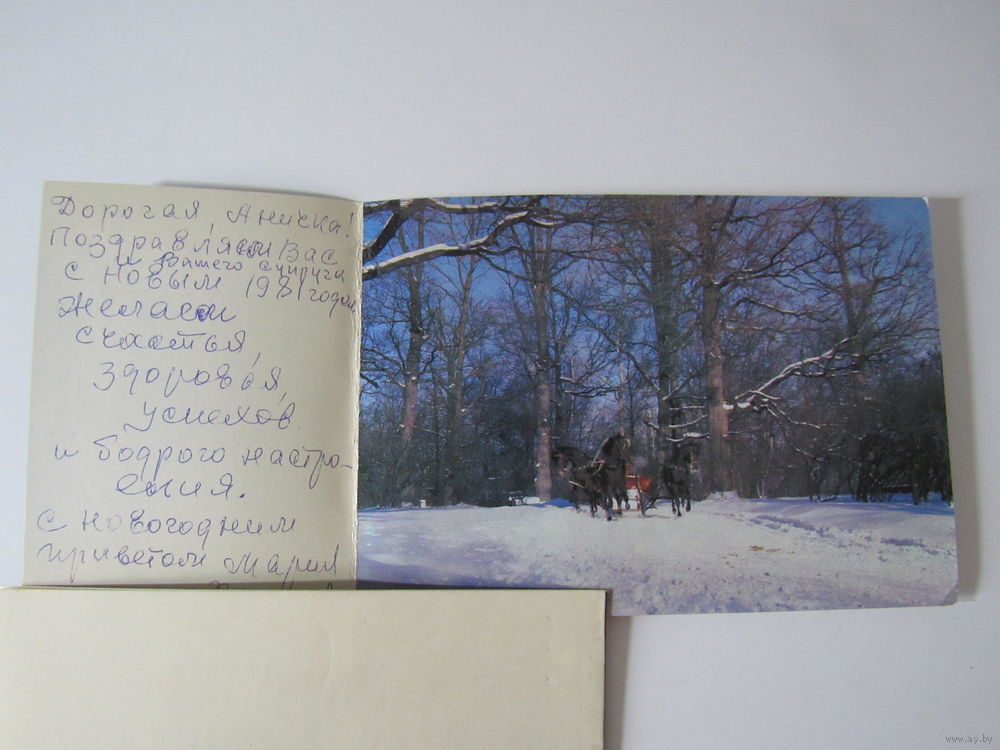 Дорогая Аничка!
Поздравляем Вас
и Вашего супруга
с Новым 1981 годом
Желаем
счастья,
здоровья,
успехов
и бодрого настро-
ения.
С новогодним
приветом Мария
www.ay.by